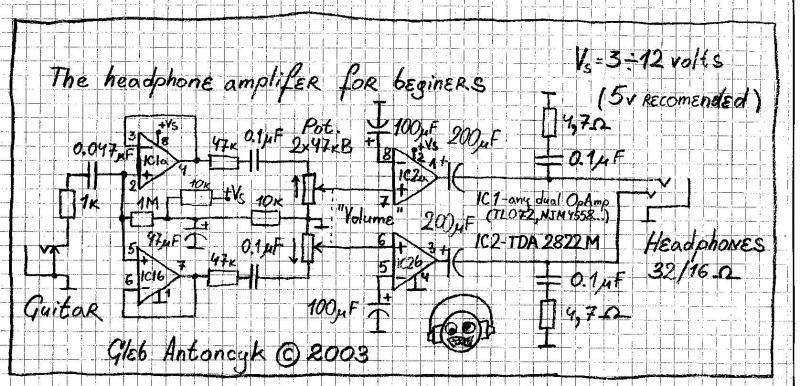 Vs = 3÷12 volts
The headphone amplifer for beginers
(5v recomended)
0.047μF
3
+Vs
8
IC1a
4
2
47k
0.1μF
Pot.
2x47kB
100μF
200μF
8
+Vs
2
1
IC2a
7
4,7Ω
0.1μF
1k
1M
10k
+Vs
10k
47μF
"Volume"
IC1-any dual OpAmp
(TL072, NJM4558...)
200μF
IC2-TDA 2822M
5
IC1b
7
6
1
47k
0.1μF
6
IC2b
3
5
4
100μF
Headphones
32/16 Ω
0.1μF
4,7Ω
Guitar
Gleb Antoncyk © 2003